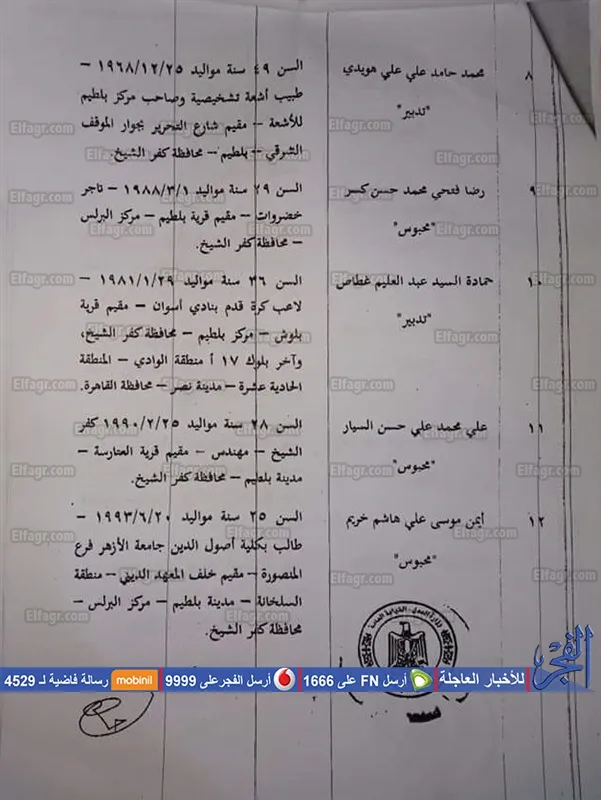 ٨
محمد حامد علي علي هويدي
"تدبير"
السن ٤٩ سنة مواليد ١٩٦٨/١٢/٢٥ –
طبيب أشعة تشخيصية وصاحب مركز بلطيم
للأشعة – مقيم شارع التحرير بجوار الموقف
الشرقي – بلطيم – محافظة كفر الشيخ.
٩
رضا فتحي محمد حسن كسر
"محبوس"
السن ٢٩ سنة مواليد ١٩٨٨/٣/١ – تاجر
خضروات – مقيم قرية بلطيم – مركز البرلس
– محافظة كفر الشيخ.
١٠
حمادة السيد عبد العليم غطاص
"تدبير"
السن ٣٦ سنة مواليد ١٩٨١/١/٢٩ –
لاعب كرة قدم بنادي أسوان – مقيم قرية
بلوش – مركز بلطيم – محافظة كفر الشيخ،
وآخر بلوك ١٧ أ منطقة الوادي – المنطقة
الحادية عشرة – مدينة نصر – محافظة القاهرة.
١١
علي محمد علي حسن السيار
"محبوس"
السن ٢٨ سنة مواليد ١٩٩٠/٢/٢٥ كفر
الشيخ – مهندس – مقيم قرية العتارسة –
مدينة بلطيم – محافظة كفر الشيخ.
١٢
أيمن موسى علي هاشم خريم
"محبوس"
السن ٢٥ سنة مواليد ١٩٩٣/٦/٢٠ –
طالب بكلية أصول الدين جامعة الأزهر فرع
المنصورة – مقيم خلف المعهد الديني – منطقة
السلخانة – مدينة بلطيم – مركز البرلس –
محافظة كفر الشيخ.
الفجر
للأخبار العاجلة أرسل FN على 1666 أرسل الفجر على 9999 mobinil رسالة فاضية لـ 4529
Elfagr.com